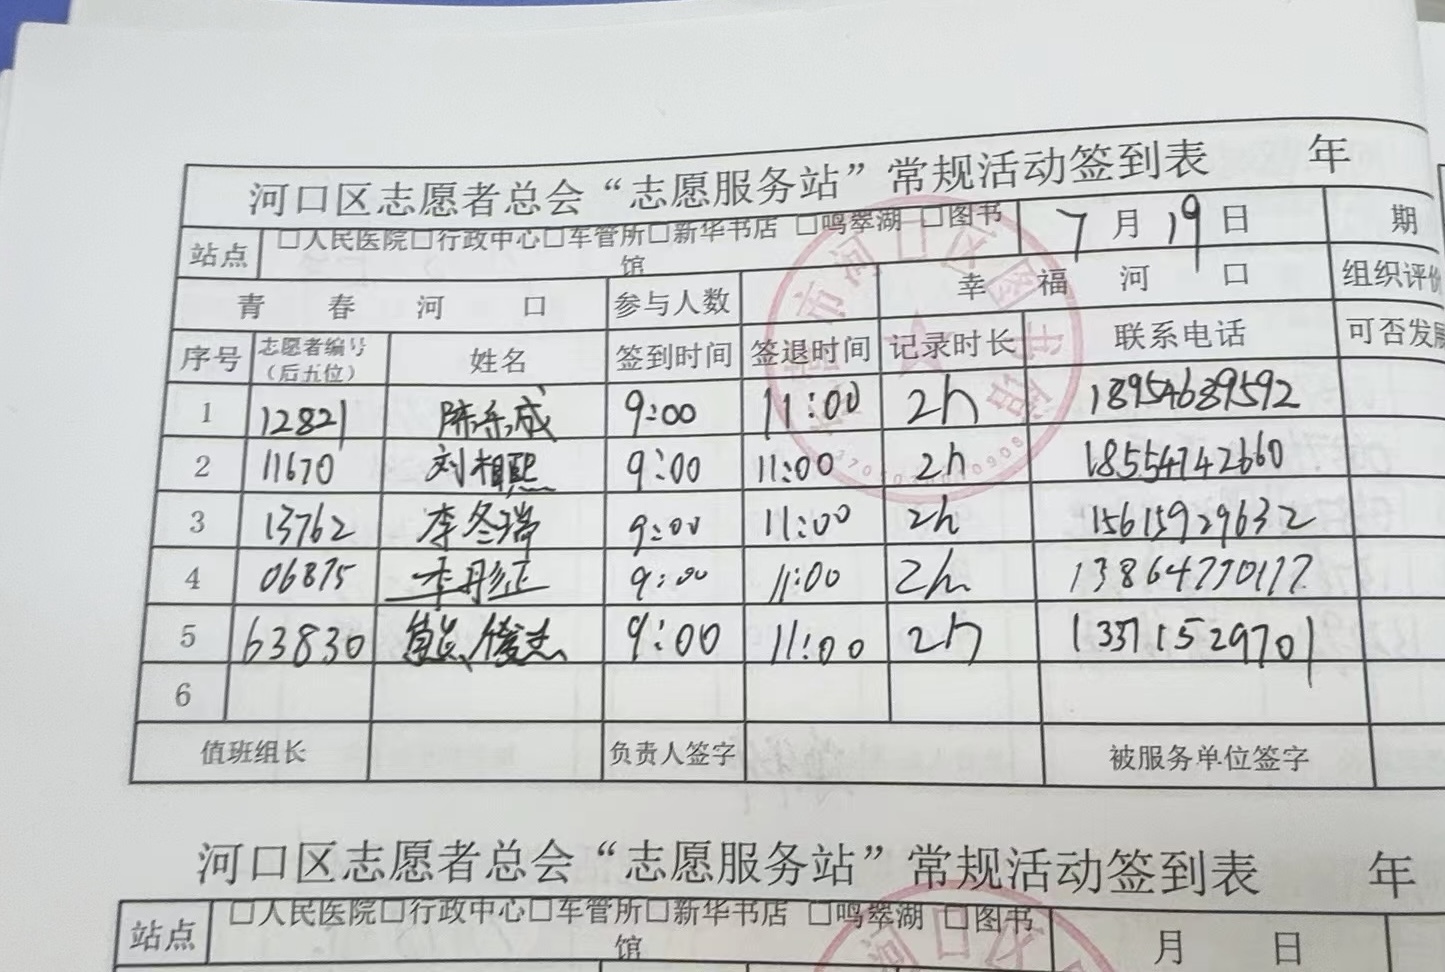 河口区志愿者总会“志愿服务站”常规活动签到表 年
站点 □人民医院□行政中心□车管所□新华书店 □鸣翠湖 □图书馆 7月19日 期
青春河口 参与人数 幸福河口 组织评价
序号 志愿者编号（后五位） 姓名 签到时间 签退时间 记录时长 联系电话 可否发展
1 12821 陈乐成 9:00 11:00 2h 18954689592
2 11670 刘相熙 9:00 11:00 2h 18554742660
3 13762 李冬瑞 9:00 11:00 2h 15615929632
4 06875 李彤征 9:00 11:00 2h 13864770117
5 63830 9:00 11:00 2h 13371529701
6
值班组长 负责人签字 被服务单位签字
河口区志愿者总会“志愿服务站”常规活动签到表 年
站点 □人民医院□行政中心□车管所□新华书店 □鸣翠湖 □图书馆 月 日